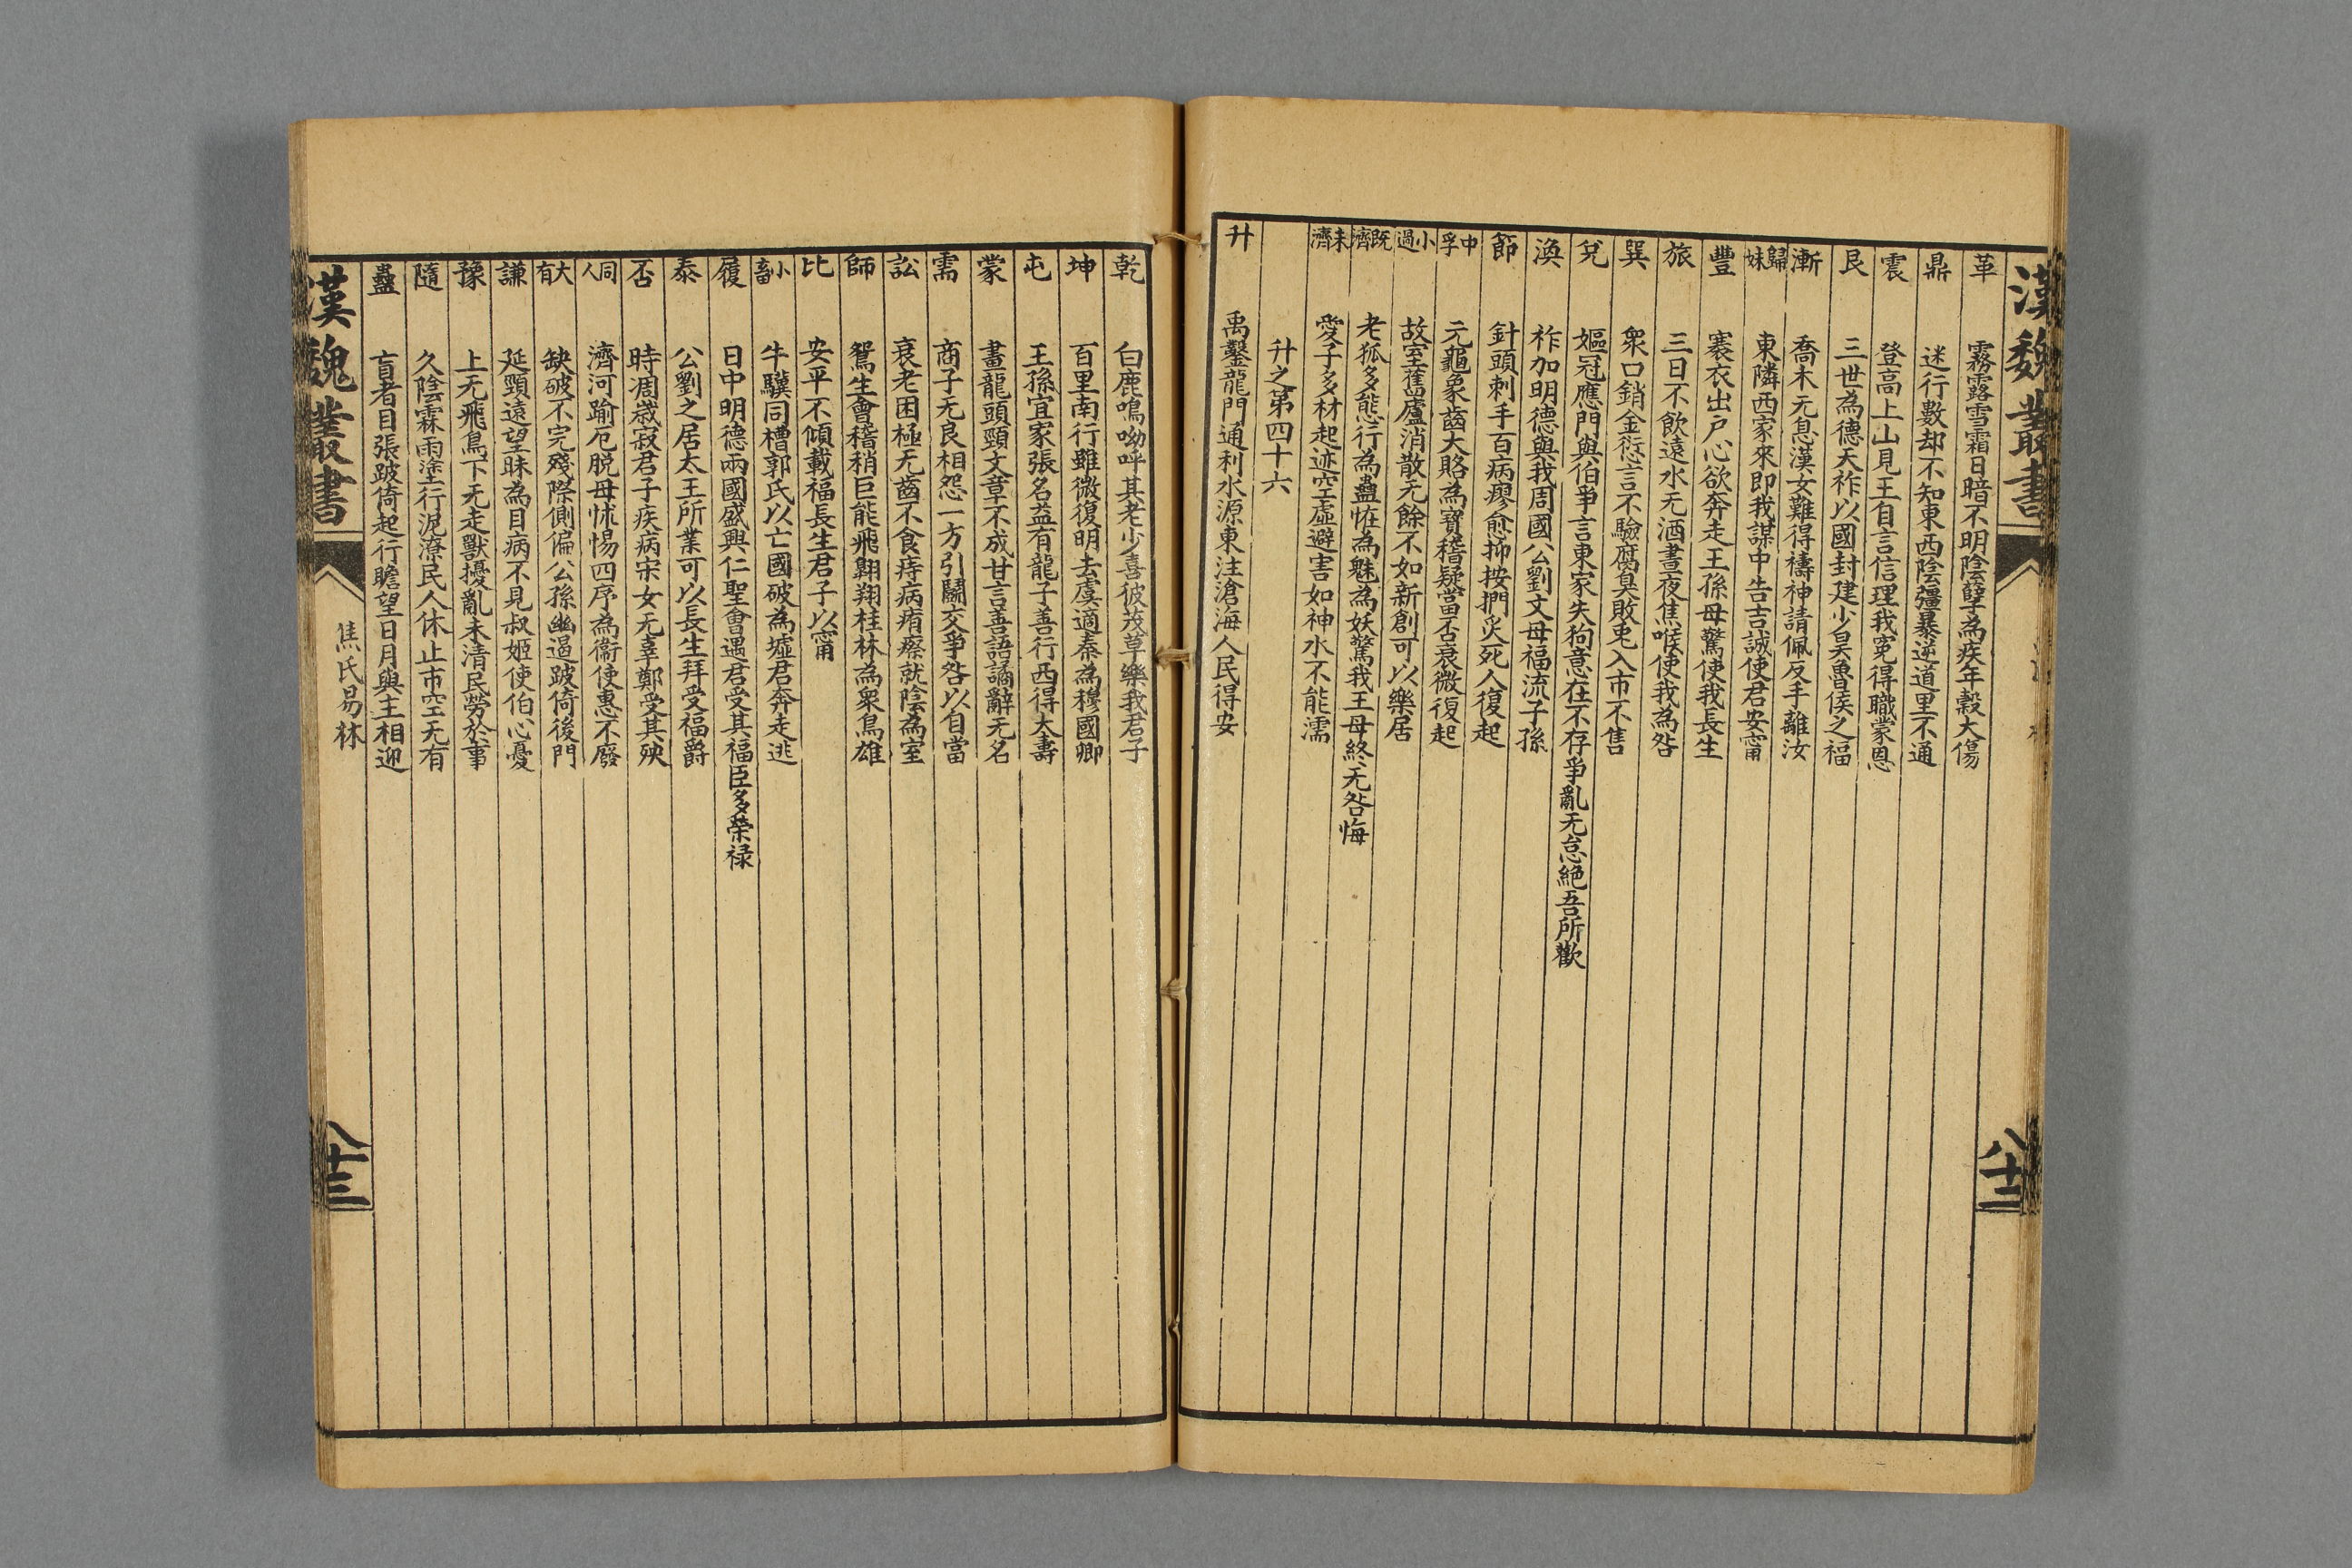 漢魏叢書
八十二
革 霧露雪霜日暗不明陰孽為疾年穀大傷
鼎 迷行數却不知東西陰彊暴逆道里不通
震 登高上山見王自言信理我寃得職蒙恩
艮 三世為德天祚以國封建少昊魯侯之福
漸 喬木无息漢女難得禱神請佩反手離汝
歸妹 東隣西家來即我謀中告吉誠使君安甯
豐 褰衣出戶心欲奔走王孫母驚使我長生
旅 三日不飲遠水无酒晝夜焦喉使我為咎
巽 眾口銷金愆言不驗腐臭敗兎入市不售
兌 嫗冠應門與伯爭言東家失狗意在不存爭亂无怠絕吾所歡
渙 祚加明德與我周國公劉文母福流子孫
節 針頭刺手百病瘳愈抑按捫炙死人復起
中孚 元龜象齒大賂為寶稽疑當否衰微復起
小過 故室舊廬消散无餘不如新創可以樂居
既濟 老狐多態行為蠱恠為魅為妖驚我王母終无咎悔
未濟 愛子多材起迹空虛避害如神水不能濡
升之第四十六
升 禹鑿龍門通利水源東注滄海人民得安
乾 白鹿鳴呦呼其老少喜彼茂草樂我君子
坤 百里南行雖微復明去虞適秦為穆國卿
屯 王孫宜家張名益有龍子善行西得大壽
蒙 畫龍頭頸文章不成甘言善語譎辭无名
需 商子无良相怨一方引鬭交爭咎以自當
訟 衰老困極无齒不食痔病痟瘵就陰為室
師 鴛生會稽稍巨能飛翺翔桂林為衆鳥雄
比 安平不傾載福長生君子以甯
小畜 牛驥同槽郭氏以亡國破為墟君奔走逃
履 日中明德兩國盛興仁聖會遇君受其福臣多榮祿
泰 公劉之居太王所業可以長生拜受福爵
否 時凋歲寂君子疾病宋女无辜鄭受其殃
同人 濟河踰厄脫母怵惕四序為衞使惠不廢
大有 缺破不完殘隙側偏公孫幽遏跛倚後門
謙 延頸遠望眛為目病不見叔姬使伯心憂
豫 上无飛鳥下无走獸擾亂未清民勞於事
隨 久陰霖雨塗行泥潦民人休止市空无有
蠱 盲者目張跛倚起行瞻望日月與主相迎
漢魏叢書
焦氏易林
八十三